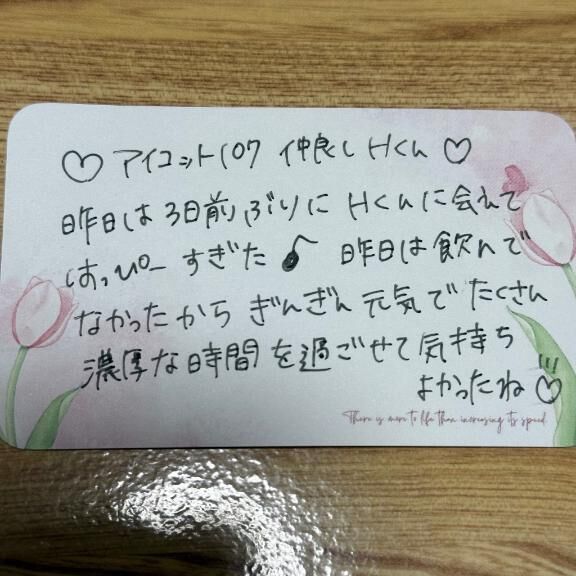 ♡ アイコット107 仲良しHくん ♡
昨日は3日前ぶりに Hくんに会えて
はっぴーすぎた♪ 昨日は飲んで
なかったから ぎんぎん元気で たくさん
濃厚な時間を過ごせて気持ち
よかったね!!!♡
There is more to life than increasing its speed.